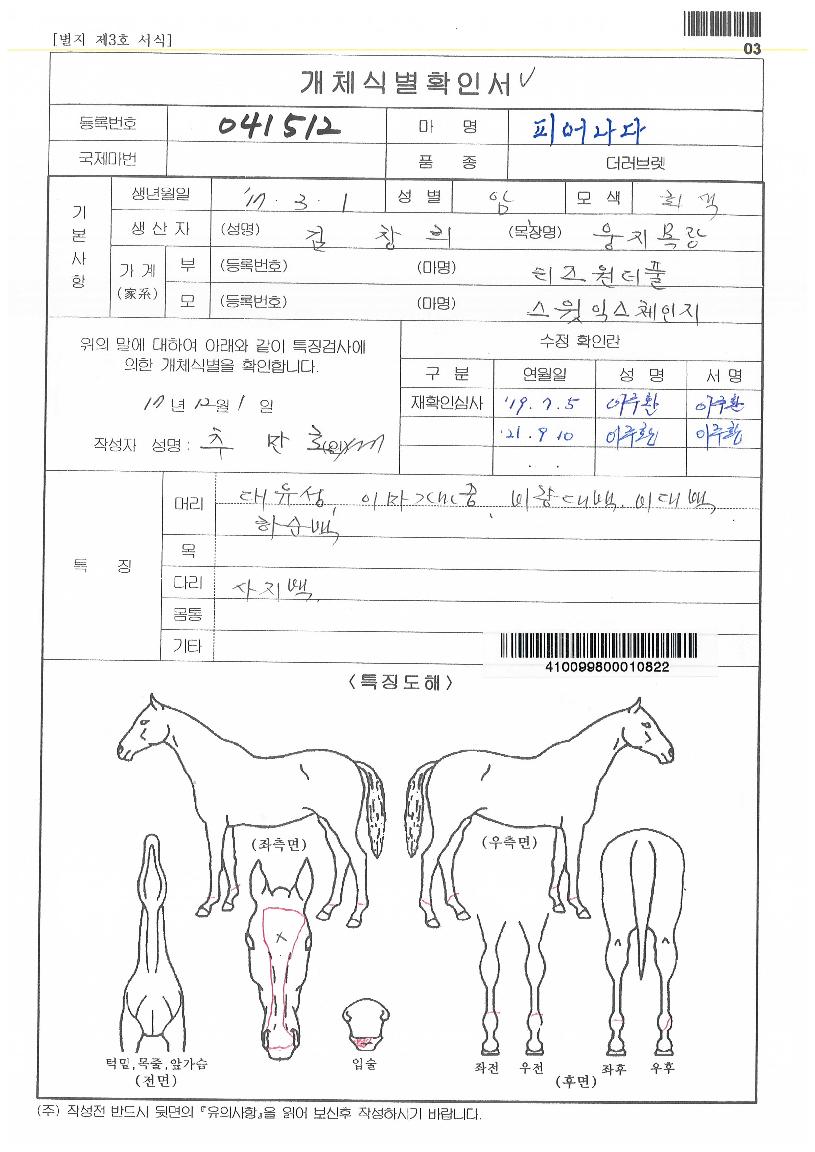 [별지 제3호 서식]
03
개체식별확인서 ✓
등록번호 041512 마 명 피어나다
국제마번 품 종 더러브렛
기본사항
생년월일 '17. 3. 1 성 별 암 모 색 회색
생 산 자 (성명) 김창희 (목장명) 웅지목장
가계(家系) 부 (등록번호) (마명) 티즈원더풀
모 (등록번호) (마명) 스윗익스체인지
위의 말에 대하여 아래와 같이 특징검사에
의한 개체식별을 확인합니다.
17년 12월 1일
작성자 성명 : 추만호 (인)
수정 확인란
구 분 연월일 성 명 서 명
재확인심사 '19. 7. 5 이주환 이주환
'21. 9. 10 이주환 이주환
. .
특 징
머리 대유성, 이마가마중, 비량대백, 비대백,
하순백,
목
다리 사지백,
몸통
기타
410099800010822
<특징도해>
(좌측면) (우측면)
턱밑,목줄,앞가슴
(전면)
입술
좌전 우전 좌후 우후
(후면)
(주) 작성전 반드시 뒷면의 『유의사항』을 읽어 보신후 작성하시기 바랍니다.